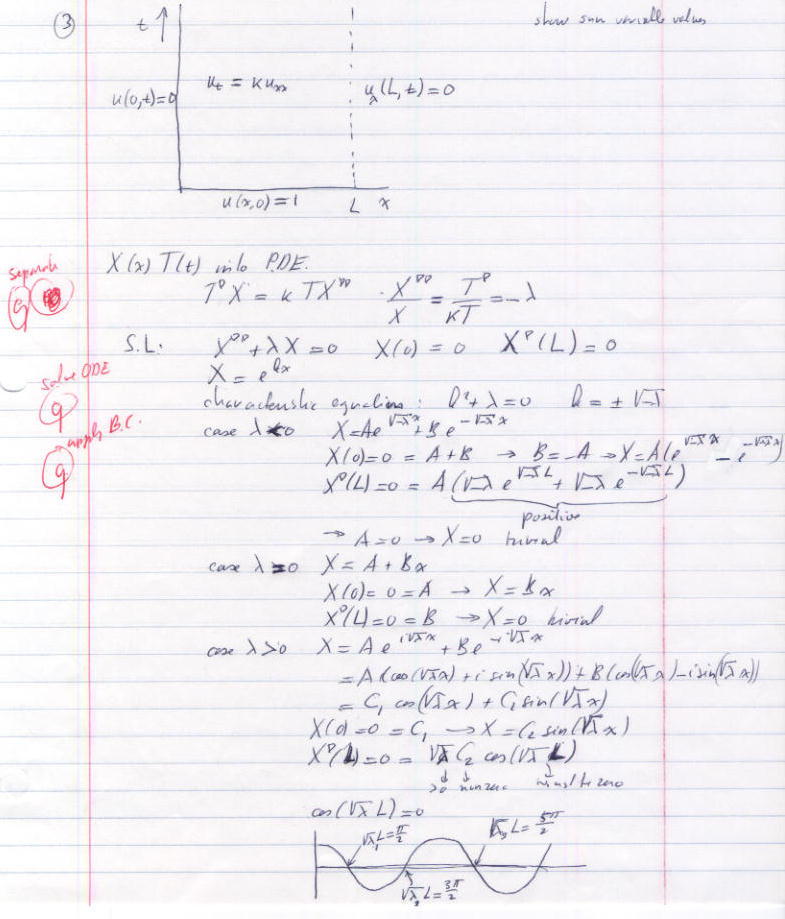 ③ t ↑ show sum variable values
u(0,t)=0 u_t = κu_xx u_x(L,t)=0
u(x,0)=1 L x
X(x)T(t) into PDE.
separate
T'X = κTX'' X''/X = T'/κT = -λ
9
S.L. X''+λX=0 X(0)=0 X'(L)=0
solve ODE
X = e^kx
9
characteristic equation: k²+λ=0 k=±√-λ
apply B.C.
case λ<0 X=Ae^√-λx+Be^-√-λx
9
X(0)=0=A+B → B=-A → X=A(e^√-λx - e^-√-λx)
X'(L)=0=A(√-λ e^√-λL + √-λ e^-√-λL)
positive
→ A=0 → X=0 trivial
case λ=0 X=A+Bx
X(0)=0=A → X=Bx
X'(L)=0=B → X=0 trivial
case λ>0 X=Ae^i√λx + Be^-i√λx
=A(cos(√λx)+i sin(√λx))+B(cos(√λx)-i sin(√λx))
=C₁ cos(√λx)+C₂ sin(√λx)
X(0)=0=C₁ → X=C₂ sin(√λx)
X'(L)=0=√λ C₂ cos(√λL)
>0 nonzero must be zero
cos(√λL)=0
√λ₁L=π/2 √λ₃L=5π/2
√λ₂L=3π/2